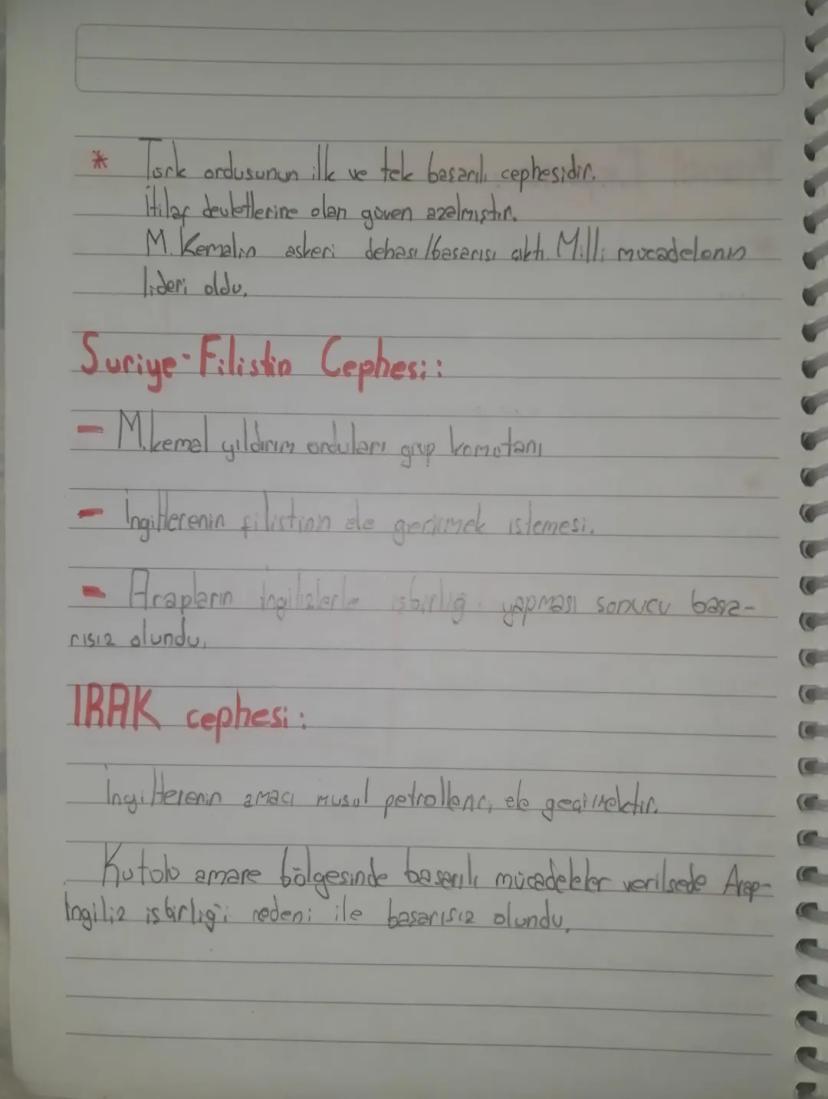 * Türk ordusunun ilk ve tek başarılı cephesidir.
İtilaf devletlerine olan güven azalmıştır.
M. Kemalin askeri dehası/başarısı çıktı. Milli mücadelenin
lideri oldu.
Suriye-Filistin Cephesi:
- M.kemal yıldırım orduları grup komutanı
- İngilterenin filistinin ele geçirmek istemesi.
- Arapların ingilizlerle işbirliği yapması sonucu başa-
rısız olundu.
IRAK cephesi:
İngilterenin amacı musul petrollerini ele geçirmektir.
Kutolu amare bölgesinde başarılı mücadeleler verilsede Arap-
İngiliz işbirliği nedeni ile başarısız olundu.